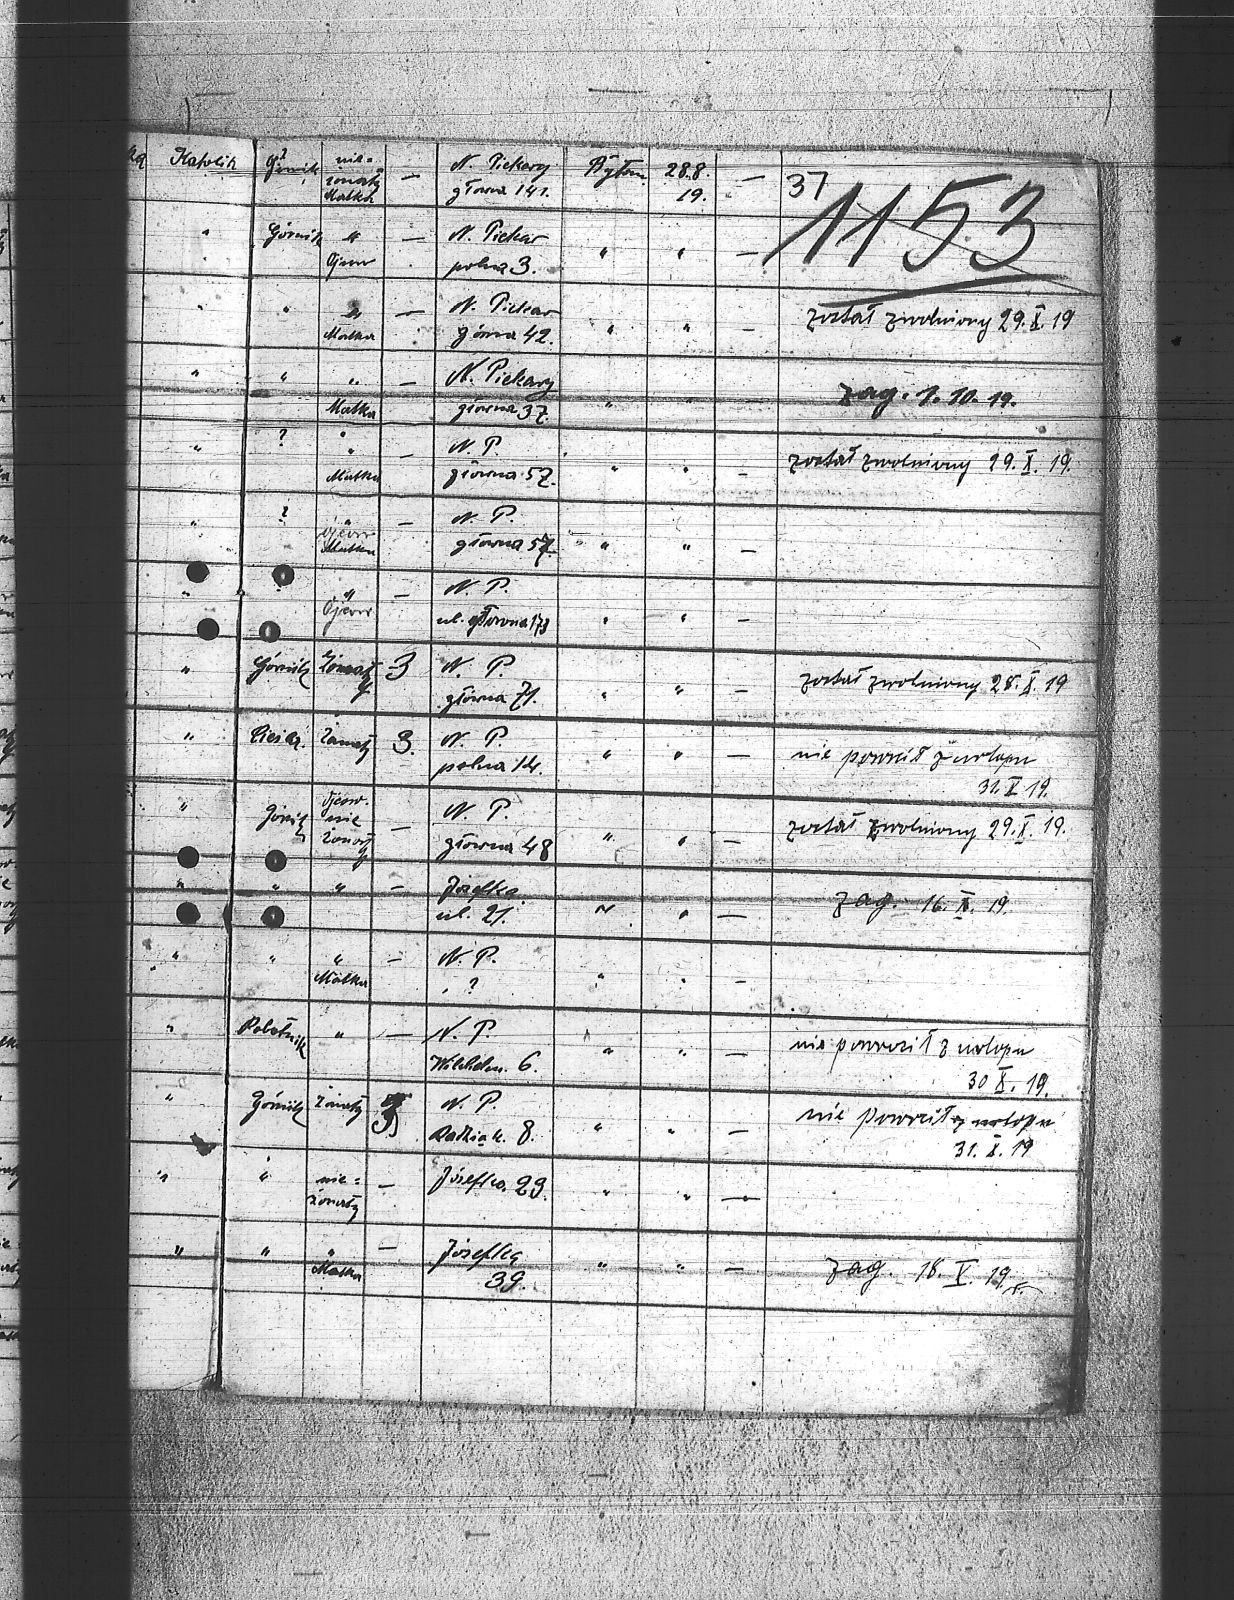 Katolik Górnik nie= — N. Piekary Bytom 28.8. — 37
żonaty główna 141. 19.
Matka
1153
" Górnik " — N. Piekar " " —
Ojciec polna 3.
" " " — N. Piekar został zwolniony 29.X.19
Matka główna 42. " " —
" " " — N. Piekary zag. 1.10.19.
Matka główna 37. " " —
" ? " — N. P. został zwolniony 29.X.19.
Matka główna 57. " " —
" ? " — N. P.
Matka główna 57. " " —
" " — N. P.
Ojciec ul. główna 173 " "
" Górnik Żonaty 3 N. P. został zwolniony 28.X.19
główna 71. " " —
" Cieśla. żonaty 3. N. P. " " — nie powrócił z urlopu
polna 14. 31.X.19.
" Górnik nie — N. P. został zwolniony 29.X.19.
żonaty główna 48 " " —
" " " — Józefka zag. 16.X.19.
ul. 21. " " —
" " " — N. P.
Matka ? " " —
" Robotnik " — N. P. nie powrócił z urlopu
Wilhelm. 6. " " — 30 X. 19.
" Górnik żonaty 3 N. P. nie powrócił z urlopu
8. " " — 31. X. 19
" " nie= — Józefka 29. " " —
żonaty
" " " — Józefka
Matka 39. " " — zag. 18. X. 19.